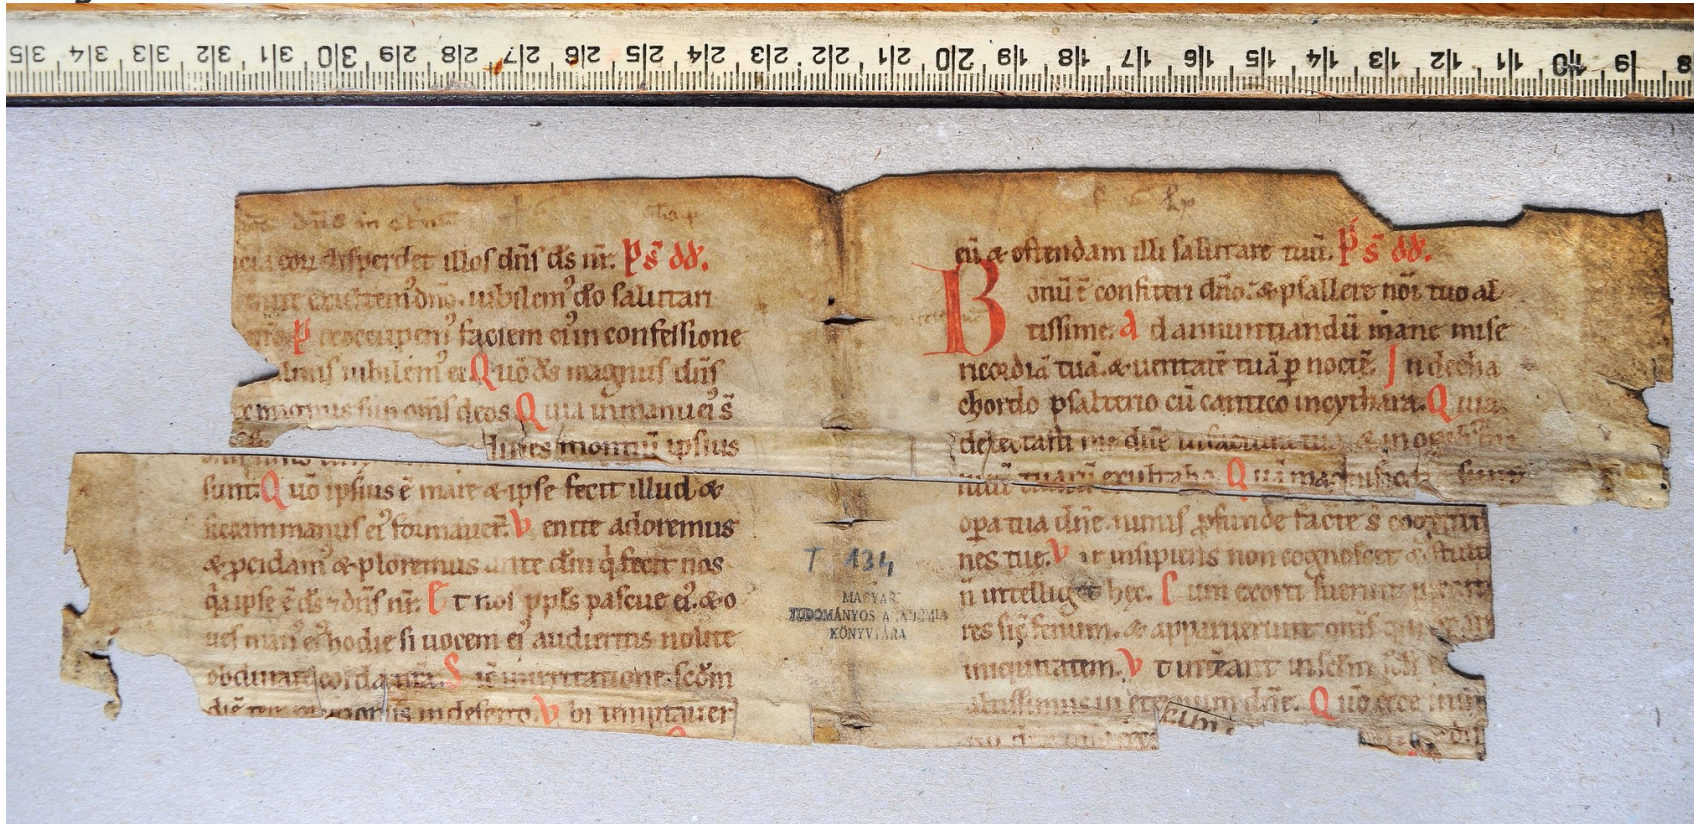 cia eoꝝ disperdet illos dñs ds nr̄. Ps̄ dd.
exultemꝰ dño. iubilemꝰ dõ salutari
preoccupemꝰ faciem eiꝰ in confessione
iubilemꝰ ei Quō ds magnus dñs
magnus sup om̄s deos Quia in manu eiꝰ s̄
montiū ipsius
sunt. Quō ipsius ē mare & ipse fecit illud &
siccam manus eiꝰ formauer̄. Venite adoremus
& pcidamꝰ & ploremus ante dm̄ q̇ fecit nos
q̇a ipse ē ds ⁊ dñs nr̄. Et nos ppls pascue eiꝰ. & o
ues manꝰ eiꝰ hodie si uocem eiꝰ audieritis nolite
obdurare corda urā. Sic in irritatione scd̄m
diē temptationis in deserto. Vbi temptauer
eū & ostendam illi salutare tuū. Ps̄ dd.
Bonū ē confiteri dño. & psallere nōi tuo al
tissime. Ad annuntiandū mane mise
ricordiā tuā. & ueritatē tuā p noctē. In decha
chordo psalterio cū cantico in cythara. Quia
delectasti me dñe in factura tua & in opib;
nuū tuarū exultabo. Quā magnificata sunt
opa tua dñe. nimis pfunde facte s̄ cogitati
nes tue. Vir insipiens non cognoscet & stult
n̄ intelliget hec. Cum exorti fuerint peccato
res sic̄ fenum. & apparuerunt om̄s qui
iniquitatem. Vt intēant in sclm̄ scli
altissimus in eternum dñe. Quō ecce inim
T 134
MAGYAR
TUDOMÁNYOS AKADÉMIA
KÖNYVTÁRA
35 34 33 32 31 30 29 28 27 26 25 24 23 22 21 20 19 18 17 16 15 14 13 12 11 10 9 8